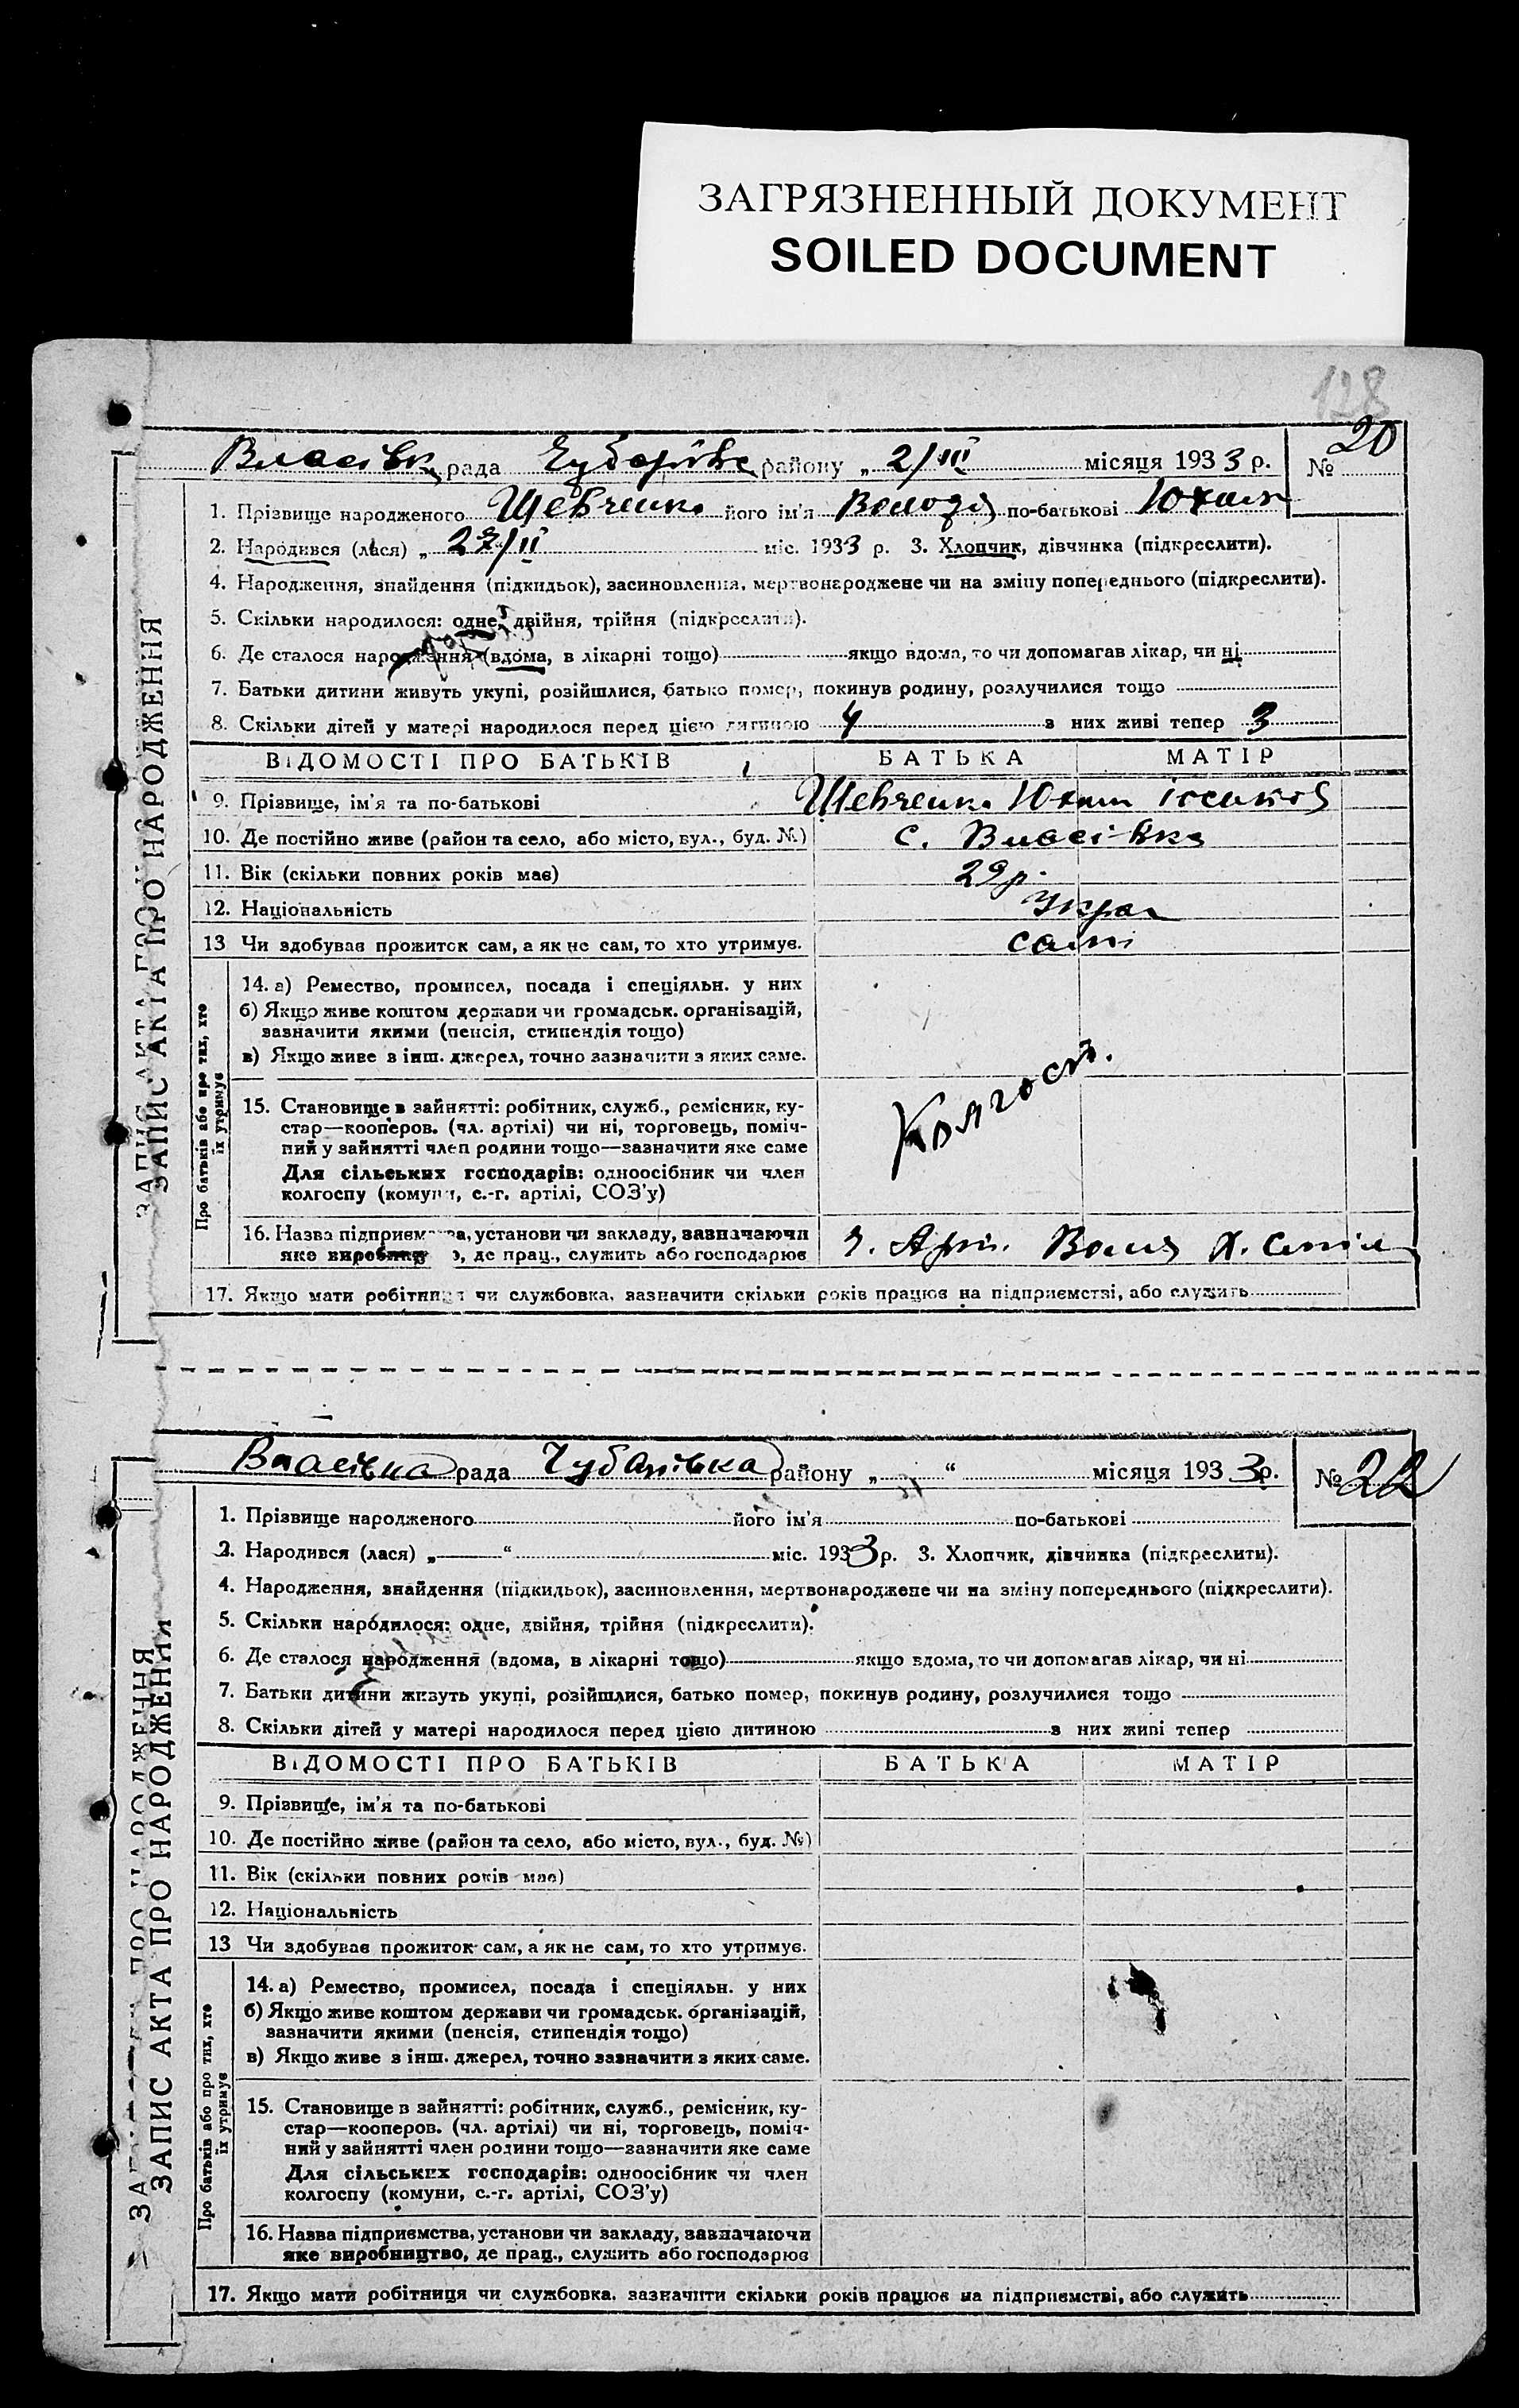 ЗАГРЯЗНЕННЫЙ ДОКУМЕНТ
SOILED DOCUMENT
128
Власівк рада Чубарівс району „ 2/III місяця 1933 р. № 20
1. Прізвище народженого Шевченко його ім'я Володя по-батькові Юхим
2. Народився (лася) „ 27/II міс. 1933 р. 3. Хлопчик, дівчинка (підкреслити).
4. Народження, знайдення (підкидьок), засиновлення, мертвонароджене чи на зміну попереднього (підкреслити).
5. Скільки народилося: одне, двійня, трійня (підкреслити).
6. Де сталося народження (вдома, в лікарні тощо) якщо вдома, то чи допомагав лікар, чи ні
7. Батьки дитини живуть укупі, розійшлися, батько помер, покинув родину, розлучилися тощо
8. Скільки дітей у матері народилося перед цією дитиною 4 з них живі тепер 3
ВІДОМОСТІ ПРО БАТЬКІВ БАТЬКА МАТІР
9. Прізвище, ім'я та по-батькові Шевченко Юхим
10. Де постійно живе (район та село, або місто, вул., буд. №) с. Власівка
11. Вік (скільки повних років має) 29 р.
12. Національність Укра
13 Чи здобував прожиток сам, а як не сам, то хто утримує. сами
Про батьків або про тих, хто їх утримує
14. а) Ремество, промисел, посада і спеціяльн. у них
б) Якщо живе коштом держави чи громадськ. організацій,
зазначити якими (пенсія, стипендія тощо)
в) Якщо живе з інш. джерел, точно зазначити з яких саме.
Колгосп.
15. Становище в зайнятті: робітник, служб., ремісник, ку-
стар—кооперов. (чл. артілі) чи ні, торговець, поміч-
ний у зайнятті член родини тощо—зазначити яке саме
Для сільських господарів: одноосібник чи член
колгоспу (комуни, с.-г. артілі, СОЗ'у)
16. Назва підприємства, установи чи закладу, зазначаючи
яке виробництво, де прац., служить або господарює Арт. Воля
17. Якщо мати робітниця чи службовка, зазначити скільки років працює на підприємстві, або служить
ЗАПИС АКТА ПРО НАРОДЖЕННЯ
Власівка рада Чубарівка району „ “ місяця 1933 р. № 22
1. Прізвище народженого його ім'я по-батькові
2. Народився (лася) „ “ міс. 1933 р. 3. Хлопчик, дівчинка (підкреслити).
4. Народження, знайдення (підкидьок), засиновлення, мертвонароджене чи на зміну попереднього (підкреслити).
5. Скільки народилося: одне, двійня, трійня (підкреслити).
6. Де сталося народження (вдома, в лікарні тощо) якщо вдома, то чи допомагав лікар, чи ні
7. Батьки дитини живуть укупі, розійшлися, батько помер, покинув родину, розлучилися тощо
8. Скільки дітей у матері народилося перед цією дитиною з них живі тепер
ВІДОМОСТІ ПРО БАТЬКІВ БАТЬКА МАТІР
9. Прізвище, ім'я та по-батькові
10. Де постійно живе (район та село, або місто, вул., буд. №)
11. Вік (скільки повних років має)
12. Національність
13 Чи здобував прожиток сам, а як не сам, то хто утримує.
Про батьків або про тих, хто їх утримує
14. а) Ремество, промисел, посада і спеціяльн. у них
б) Якщо живе коштом держави чи громадськ. організацій,
зазначити якими (пенсія, стипендія тощо)
в) Якщо живе з інш. джерел, точно зазначити з яких саме.
15. Становище в зайнятті: робітник, служб., ремісник, ку-
стар—кооперов. (чл. артілі) чи ні, торговець, поміч-
ний у зайнятті член родини тощо—зазначити яке саме
Для сільських господарів: одноосібник чи член
колгоспу (комуни, с.-г. артілі, СОЗ'у)
16. Назва підприємства, установи чи закладу, зазначаючи
яке виробництво, де прац., служить або господарює
17. Якщо мати робітниця чи службовка, зазначити скільки років працює на підприємстві, або служить
ЗАПИС АКТА ПРО НАРОДЖЕННЯ